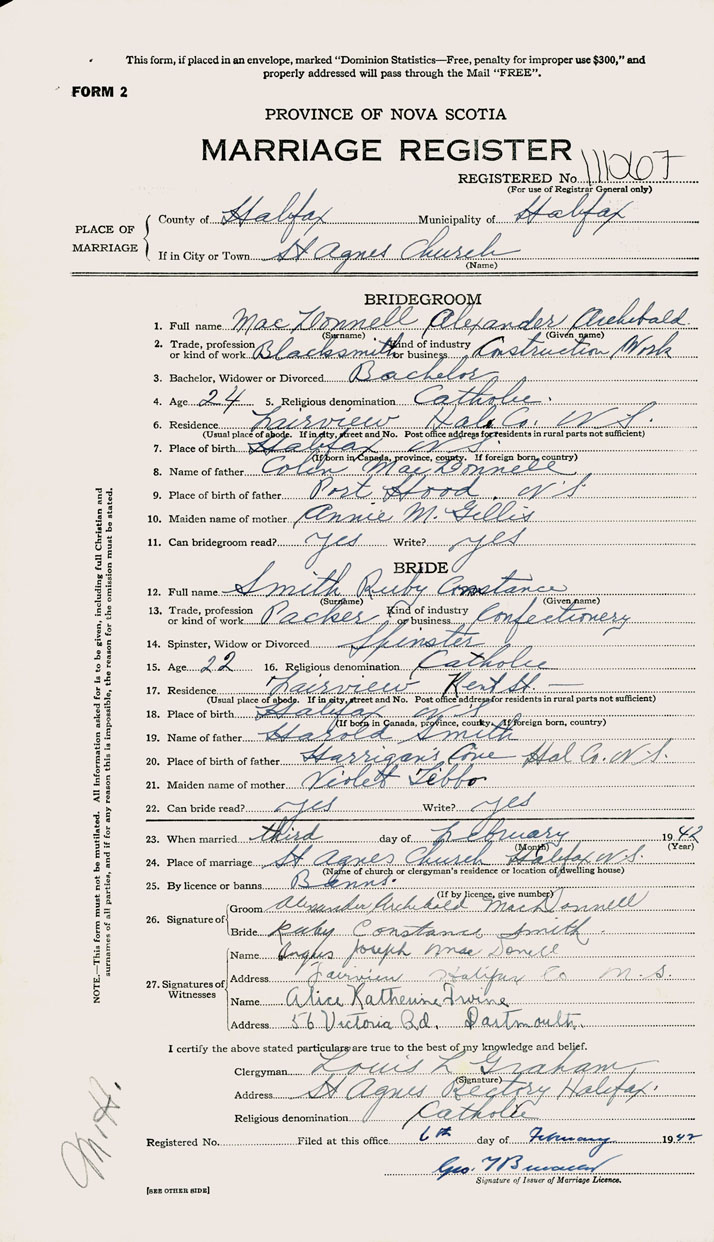 This form, if placed in an envelope, marked "Dominion Statistics—Free, penalty for improper use $300," and
properly addressed will pass through the Mail "FREE".
FORM 2
PROVINCE OF NOVA SCOTIA
MARRIAGE REGISTER
REGISTERED No.
(For use of Registrar General only)
PLACE OF MARRIAGE
County of Halifax Municipality of Halifax
If in City or Town St Agnes Church
(Name)
BRIDEGROOM
1. Full name MacDonnell Alexander Archibald
(Surname) (Given name)
2. Trade, profession or kind of work Blacksmith Kind of industry or business Construction Work
3. Bachelor, Widower or Divorced Bachelor
4. Age 24 5. Religious denomination Catholic
6. Residence Fairview Hal. Co. N.S.
(Usual place of abode. If in city, street and No. Post office address for residents in rural parts not sufficient)
7. Place of birth Halifax N.S.
(If born in Canada, province, county. If foreign born, country)
8. Name of father Colin MacDonnell
9. Place of birth of father Port Hood, N.S
10. Maiden name of mother Annie M. Gillis
11. Can bridegroom read? yes Write? yes
BRIDE
12. Full name Smith Ruby Constance
(Surname) (Given name)
13. Trade, profession or kind of work Packer Kind of industry or business Confectionery
14. Spinster, Widow or Divorced Spinster
15. Age 22 16. Religious denomination Catholic
17. Residence Fairview Kent St.
(Usual place of abode. If in city, street and No. Post office address for residents in rural parts not sufficient)
18. Place of birth Halifax N.S.
(If born in Canada, province, county. If foreign born, country)
19. Name of father Harold Smith
20. Place of birth of father Harrigan's Cove Hal Co. N.S.
21. Maiden name of mother Violett Tibbo
22. Can bride read? yes Write? yes
23. When married third day of February 1942
(Month) (Year)
24. Place of marriage St Agnes Church Halifax N.S.
(Name of church or clergyman's residence or location of dwelling house)
25. By licence or banns Banns.
(If by licence, give number)
26. Signature of
Groom Alexander Archibald MacDonnell
Bride Ruby Constance Smith
27. Signatures of Witnesses
Name Angus Joseph Mac Donell
Address Fairview Halifax Co N.S.
Name Alice Katherine Irvine
Address 56 Victoria Rd. Dartmouth.
I certify the above stated particulars are true to the best of my knowledge and belief.
Clergyman Louis L Graham
(Signature)
Address St Agnes Rectory Halifax.
Religious denomination Catholic
Registered No. Filed at this office 6th day of February 1942
Geo.
Signature of Issuer of Marriage Licence.
[SEE OTHER SIDE]
NOTE.—This form must not be mutilated. All information asked for is to be given, including full Christian and
surnames of all parties, and if for any reason this is impossible, the reason for the omission must be stated.